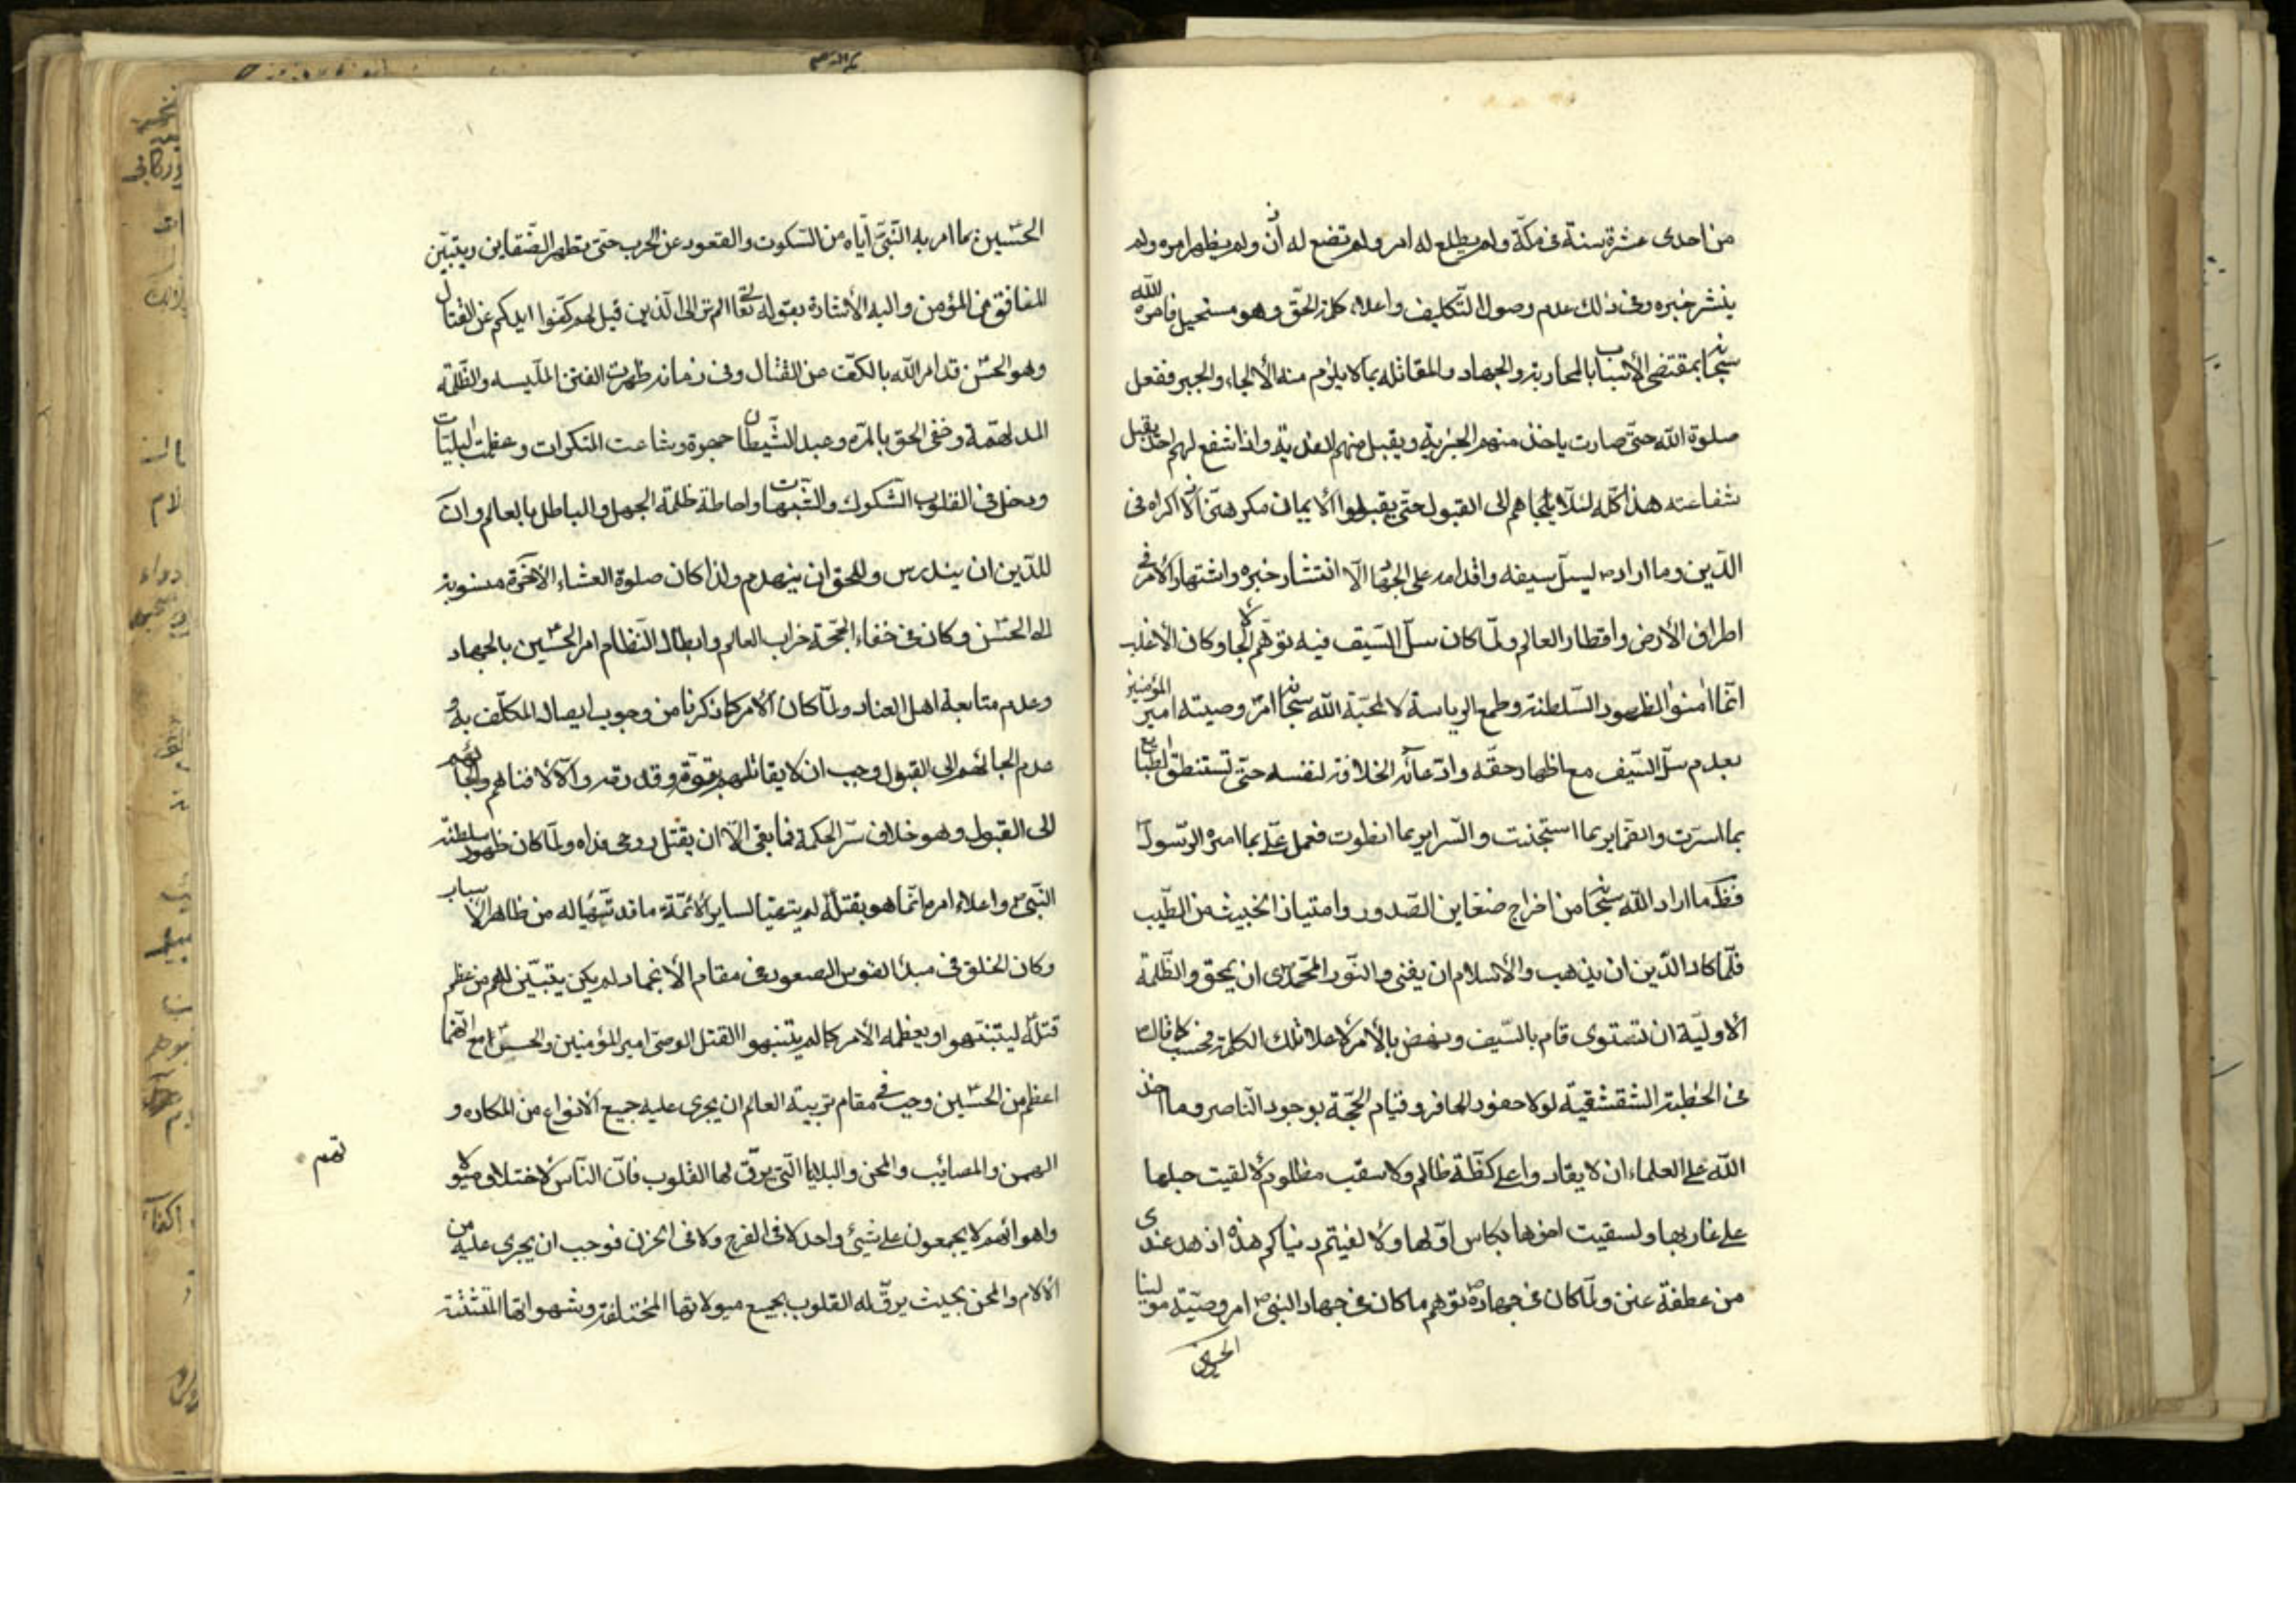 من احدى عشرة سنة فى مكّة ولم يطلع له امر ولم تضع له ان ولم يظهر امره ولم
ينشر خبره وفى ذلك عدم وصول التّكليف واعلاء كلمة الحقّ وهو مستحيل فامره الله
سبحانه بمقتضى الأسباب بالمحاربة والجهاد والمقاتله بما لا يلزم منه الألجاء والجبر ففعل
صلوة الله حتّى صارت ياخذ منهم الجزية ويقبل منهم الفدية واذا شفع لهم احد يقبل
شفاعته هذا كلّه لئلّا يلجاهم الى القبول حتّى يقبلوا الايمان مكرهين لانّه لا اكراه فى
الدّين وما اراد ص ليسلّ سيفه واقدامه على الجهاد الّا انتشار خبره واشتهار الأمر فى
اطراف الأرض واقطار العالم ولمّا كان سلّ السّيف فيه توهّم الألجاء وكان الأغلب
انّما امنوا لظهور السّلطنة وطمع الرياسة لا لمحبّة الله سبحانه امر وصيته امير المؤمنين
بعدم سلّ السّيف مع اظهار حقّه وادّعائه الخلافة لنفسه حتّى تستنطق الطبايع
بما اسرّت والضمّاير بما استجنت والسّراير بما انطوت فعمل علىّ بما امره الرّسول
فظهر ما اراد الله سبحانه من اخراج ضغاين الصّدور وامتياز الخبيث من الطّيب
فلمّا كاد الدّين ان يذهب والأسلام ان يفنى والنّور المحمّدى ان يمحق والظّلمة
الأوليّة ان تستوى قام بالسّيف ونهض بالأمر لاعلاء تلك الكلمة فحسب كما قال
فى الخطبة الشقشقيّة لولا حضور الحاضر وقيام الحجّة بوجود النّاصر وما اخذ
الله على العلماء ان لا يقاروا على كظّة ظالم ولا سغب مظلوم لألقيت حبلها
على غاربها ولسقيت اخرها بكاس اوّلها ولألفيتم دنياكم هذه ازهد عندى
من عطفة عنز ولمّا كان فى جهاده توهم ما كان فى جهاد النبىّ ص امر وصيّه مولينا
الحسن
الحسين بما امر به النّبىّ ايّاه من السّكوت والقعود عن الحرب حتّى تظهر الضّغاين ويتبيّن
المنافق من المؤمن واليه الأشارة بقوله تعالى الم تر الى الّذين قيل لهم كفّوا ايديكم عن القتال
وهو الحسن قد امر الله بالكفّ عن القتال وفى زمانه ظهرت الفتن الملبسه والظّلمة
المدلهمّة وخفى الحق بالمرّه وعبد الشّيطان جهرة وشاعت المنكرات وعظمت البليّات
ودخل فى القلوب الشّكوك والشّبهات واحاطة ظلمة الجهل والباطل بالعالم وان
للدّين ان يندرس وللحق ان ينهدم ولذا كان صلوة العشاء الأخرة منسوبة
الى الحسن وكان فى خفاء الحجّة خراب العالم وابطال النّظام امر الحسين بالجهاد
وعدم متابعة اهل العناد ولمّا كان الأمر كما ذكرنا من وجوب ايصال المكلّف به و
عدم الجائهم الى القبول وجب ان لا يقاتلهم بقوّة وقدرة والّا لافناهم والجائهم
الى القبول وهو خلاف سرّ الحكمة فما بقى الّا ان يقتل روحى فداه ولمّا كان ظهور سلطنة
النّبىّ ص واعلاء امره انّما هو بقتله لم يتهيّأ لساير الأئمّة ما قد تهيّأ له من ظاهر الأسباب
وكان الخلق فى مبدأ القوس الصعودى مقام الأنجماد لم يكن يتبيّن لهم من عظم
قتله ليتنبّهوا ويعظم الأمر كما لم يتنبهوا القتل الوصىّ امير المؤمنين والحسن مع انّهما
اعظم من الحسين وجب فى مقام تربية العالم ان يجرى عليه جميع الأنواع من المكاره و
الهمن والمصائب والمحن والبلايا الّتى يرقّ لها القلوب فانّ النّاس لأختلاف ميولا
تهم
واهوائهم لا يجمعون على شيئ واحد لا فى الفرح ولا فى الحزن فوجب ان يجرى عليه من
الألام والمحن بحيث يرقّ له القلوب بجميع ميولاتها المختلفة وشهواتها المتشتّتة